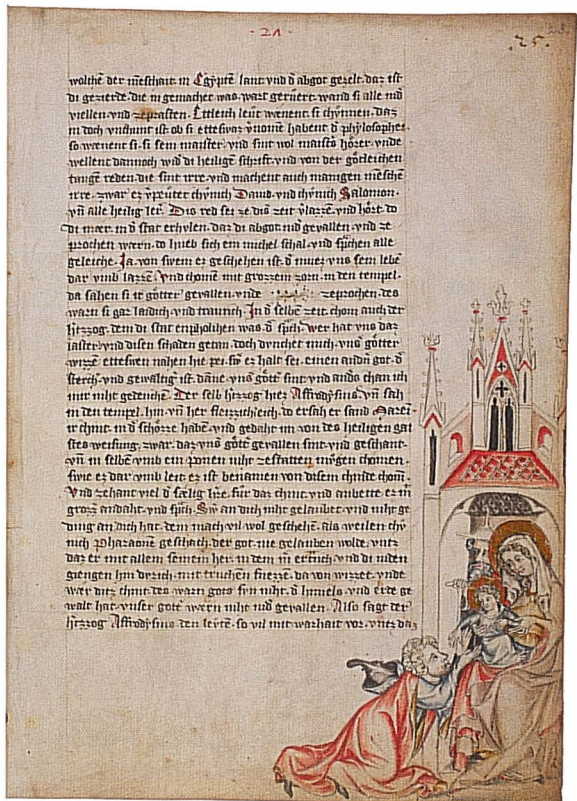 · 21 ·
· 25 ·
wolthẽ der mẽschait in Egÿptẽ lant vnd d̾ abgot gezelt · daz ist
di gezierde · die in gemachet was · wart gerüert · wand si alle nid̾
viellen · vnd zeprasten · Ettleich leut wænent · si chv̈nnen · daz
in doch vnchunt ist · ob si etteswaz v̾nomẽ habent d̾ phylosophei ·
so wænent si · si sein maister · vnd sint wol maist̾s hörer · vnde
wellent dannoch wid̾ di heilige schrift · vnd von der götleichen
taugẽ reden · die sint irre · vnd machent auch manigen mẽschẽ
irre · zwar ez v̾peutet chv̈nich Dauid · vnd chv̈nich Salomon ·
vñ alle heilig ler̾ · Dis red sei ze dis̾ zeit v̾lazzẽ · vnd hört · do
di mær · in d̾ stat erhullen · daz di abgot nid̾ geuallen · vnd ze
prochen wærn · do hueb sich ein michel schal · vnd sp̾chen alle
geleiche · Ja · von swem ez geschehen ist · d̾ muez vns sem lebẽ
dar vmb lazzẽ · Vnd chomẽ mit grozzem zorn · in den tempel ·
da sahen si ir götter · geuallen · vnde zeprochen · des
warn si gar laidich · vnd traurich · In d̾ selbẽ zeit · chom auch der
h̾tzog · dem di stat enpholihen was · d̾ sp̾ch · wer hat vns daz
laster · vnd disen schaden getan · doch dvnchet mich · vns̾ götter
wizzẽ etteswen nahen hie pei · sw̾ ez halt sei · einen and̾n got · d̾
sterch̾ · vnd gewaltig̾ ist · dañe · vns̾ götẽ sint · vnd and̾s chan ich
mir niht gedenchẽ · Der selb h̾tzog hiez Affrodysius · vñ sah
in den tempel · hin vñ her fleizzichleich · do ersach er sand Marei ·
ir chint · in d̾ schözze habẽ · vnd gedaht im von des heiligen gai
stes weisung · zwar · daz vns̾ götẽ geuallen sint · vnd geschant ·
vñ in selbẽ vmb ein ponen niht ze statten mügen chomen ·
swie ez dar vmb leit · ez ist benamen von disem chinde chom̃ ·
Vnd zehant viel d̾ sælig h̾re · für daz chint · vnd anbette ez m̾
grozz̾ andaht · vnd sp̾ch · Sw̾ an dich niht gelaubet · vnd niht ge
ding an dich hat · dem mach vil wol geschehẽ · als weilen chv̈
nich Pharaonẽ geschach · der got · nie gelauben wolde · vntz
daz er mit allem seinem her · in dem m̾ ertranch · vnd di iuden
giengen hin durich · mit truchen fuezzẽ · da von wizzet · vnde
wer ditz chint · des warn gots sv̈n niht · d̾ himels · vnd erde ge
walt hat · vnser gött̾ wærn niht nid̾ geuallen · Also sagt der
h̾tzog Affrodysius · den leutẽ · so vil mit warhait vor · vntz daz